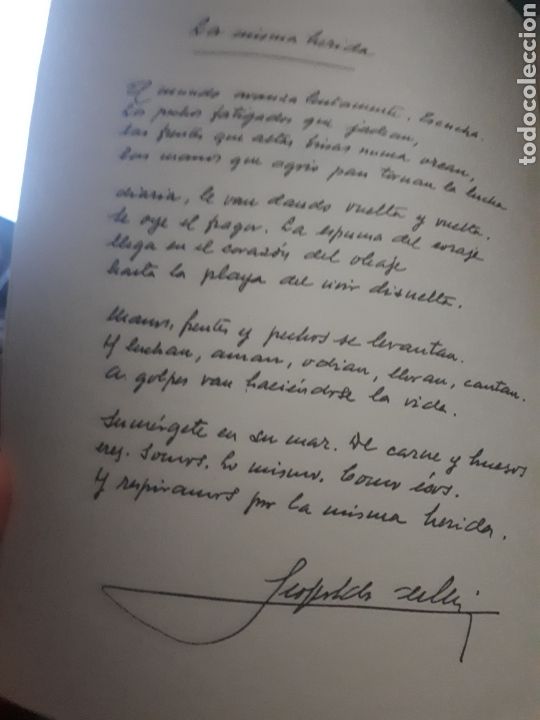 La misma herida
El mundo avanza lentamente. Escucha.
Los pechos fatigados que jadean,
las frentes que altas brisas nunca orean,
las manos que agrio pan tornan la lucha
diaria, le van dando vuelta y vuelta.
Se oye el fragor. La espuma del coraje
llega en el corazón del oleaje
hasta la playa del vivir disuelta.
Manos, frentes y pechos se levantan.
Y luchan, aman, odian, lloran, cantan.
A golpes van haciéndose la vida.
Sumérgete en su mar. De carne y huesos
eres. Somos. Lo mismo. Como ésos.
Y respiramos por la misma herida.
Leopoldo de Luis
todocoleccion